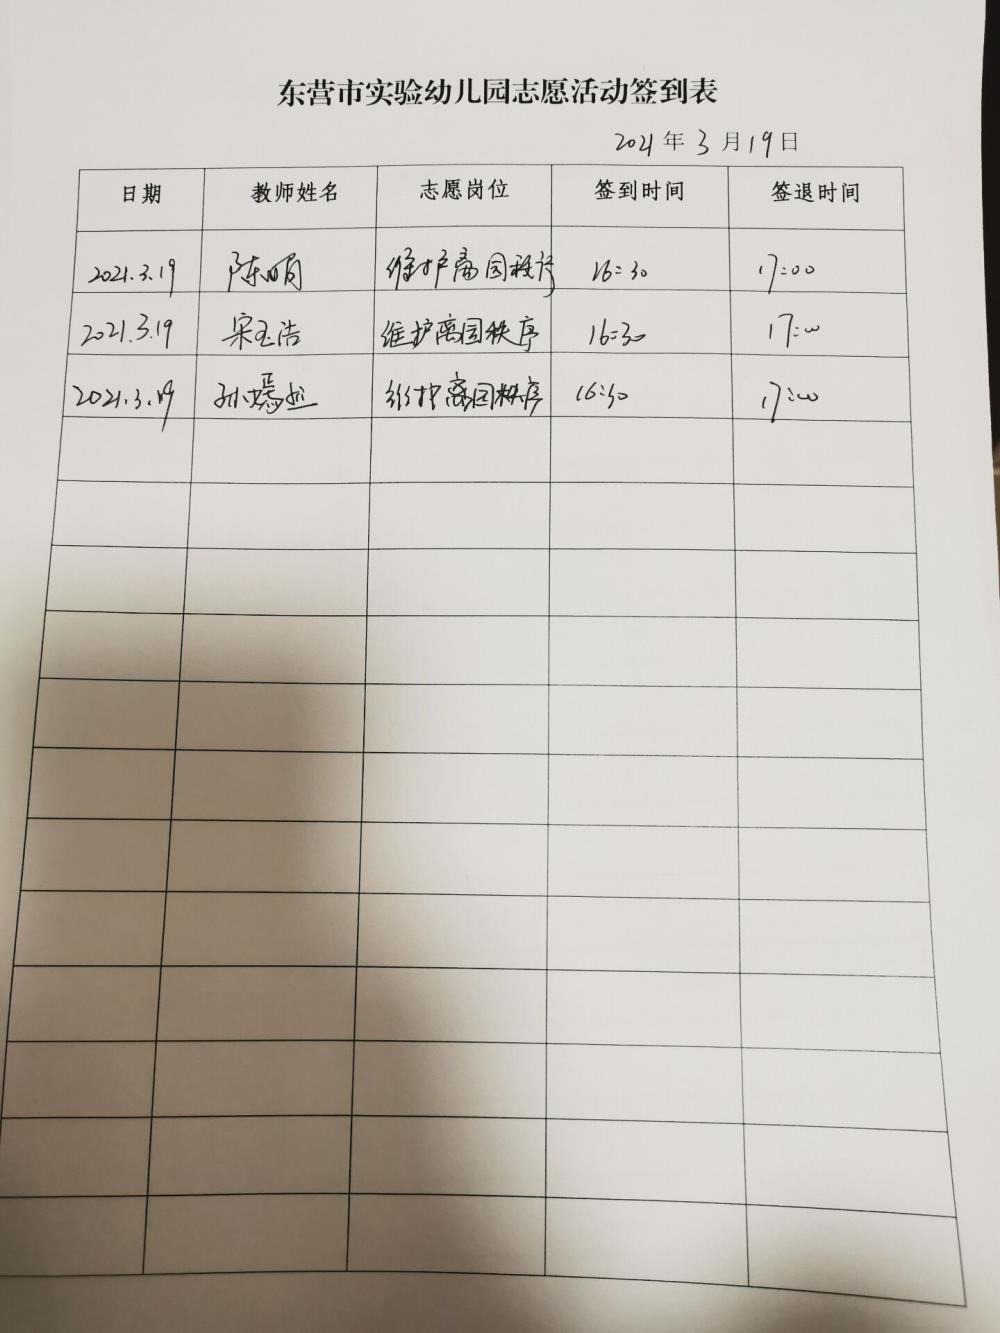 东营市实验幼儿园志愿活动签到表
2021年3月19日
日期 教师姓名 志愿岗位 签到时间 签退时间
2021.3.19 陈娟 维护离园秩序 16:30 17:00
2021.3.19 宋玉浩 维护离园秩序 16:30 17:00
2021.3.19 孙嫣然 维护离园秩序 16:30 17:00